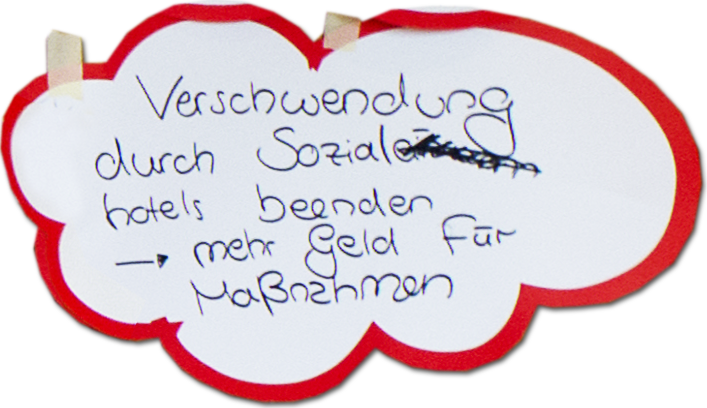 Verschwendung
durch Sozial
hotels beenden
→ mehr Geld für
Maßnahmen